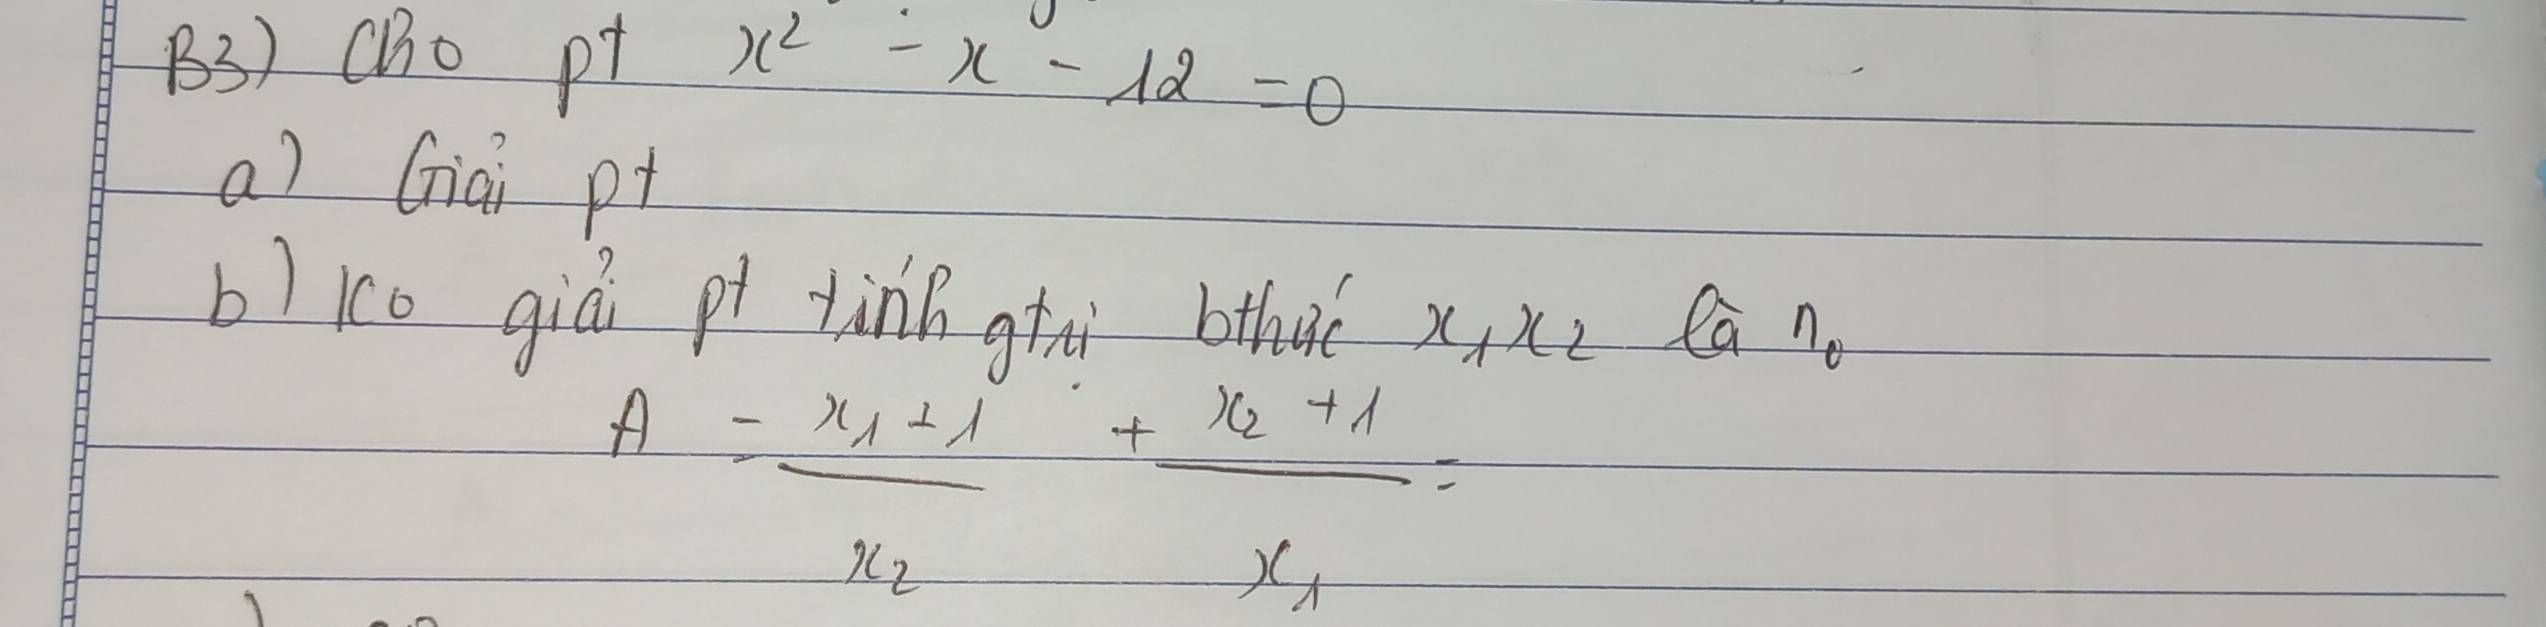 B3) Cho pt x² - x - 12 = 0
a) Giải pt
b) Ko giải pt tính gtrị bthức x₁x₂ là n₀
A = x₁ + 1 + x₂ + 1 =
x₂ x₁